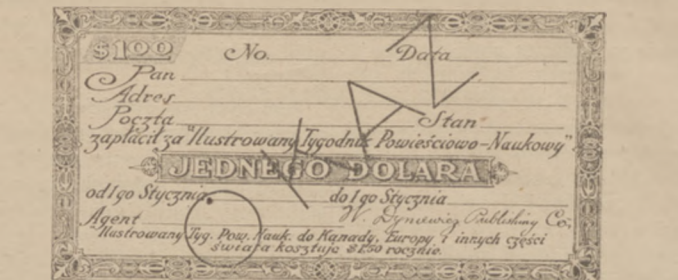 $1.00 No. Data
Pan
Adres
Poczta Stan
zapłacił za "Ilustrowany Tygodnik Powieściowo-Naukowy"
JEDNEGO DOLARA
od 1go Stycznia do 1go Stycznia
Agent W. Dyniewicz Publishing Co.,
"Ilustrowany Tyg. Pow. Nauk. do Kanady, Europy i innych części
świata kosztuje $1.50 rocznie.